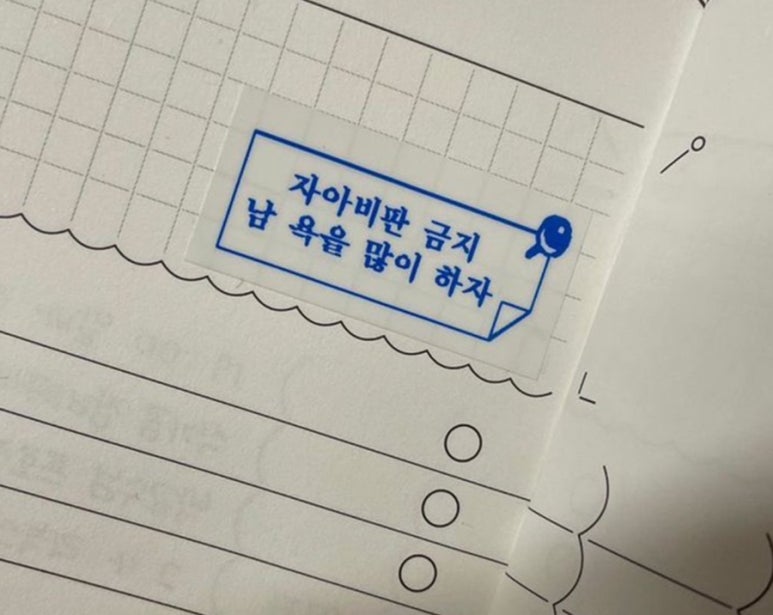 자아비판 금지
남 욕을 많이 하자